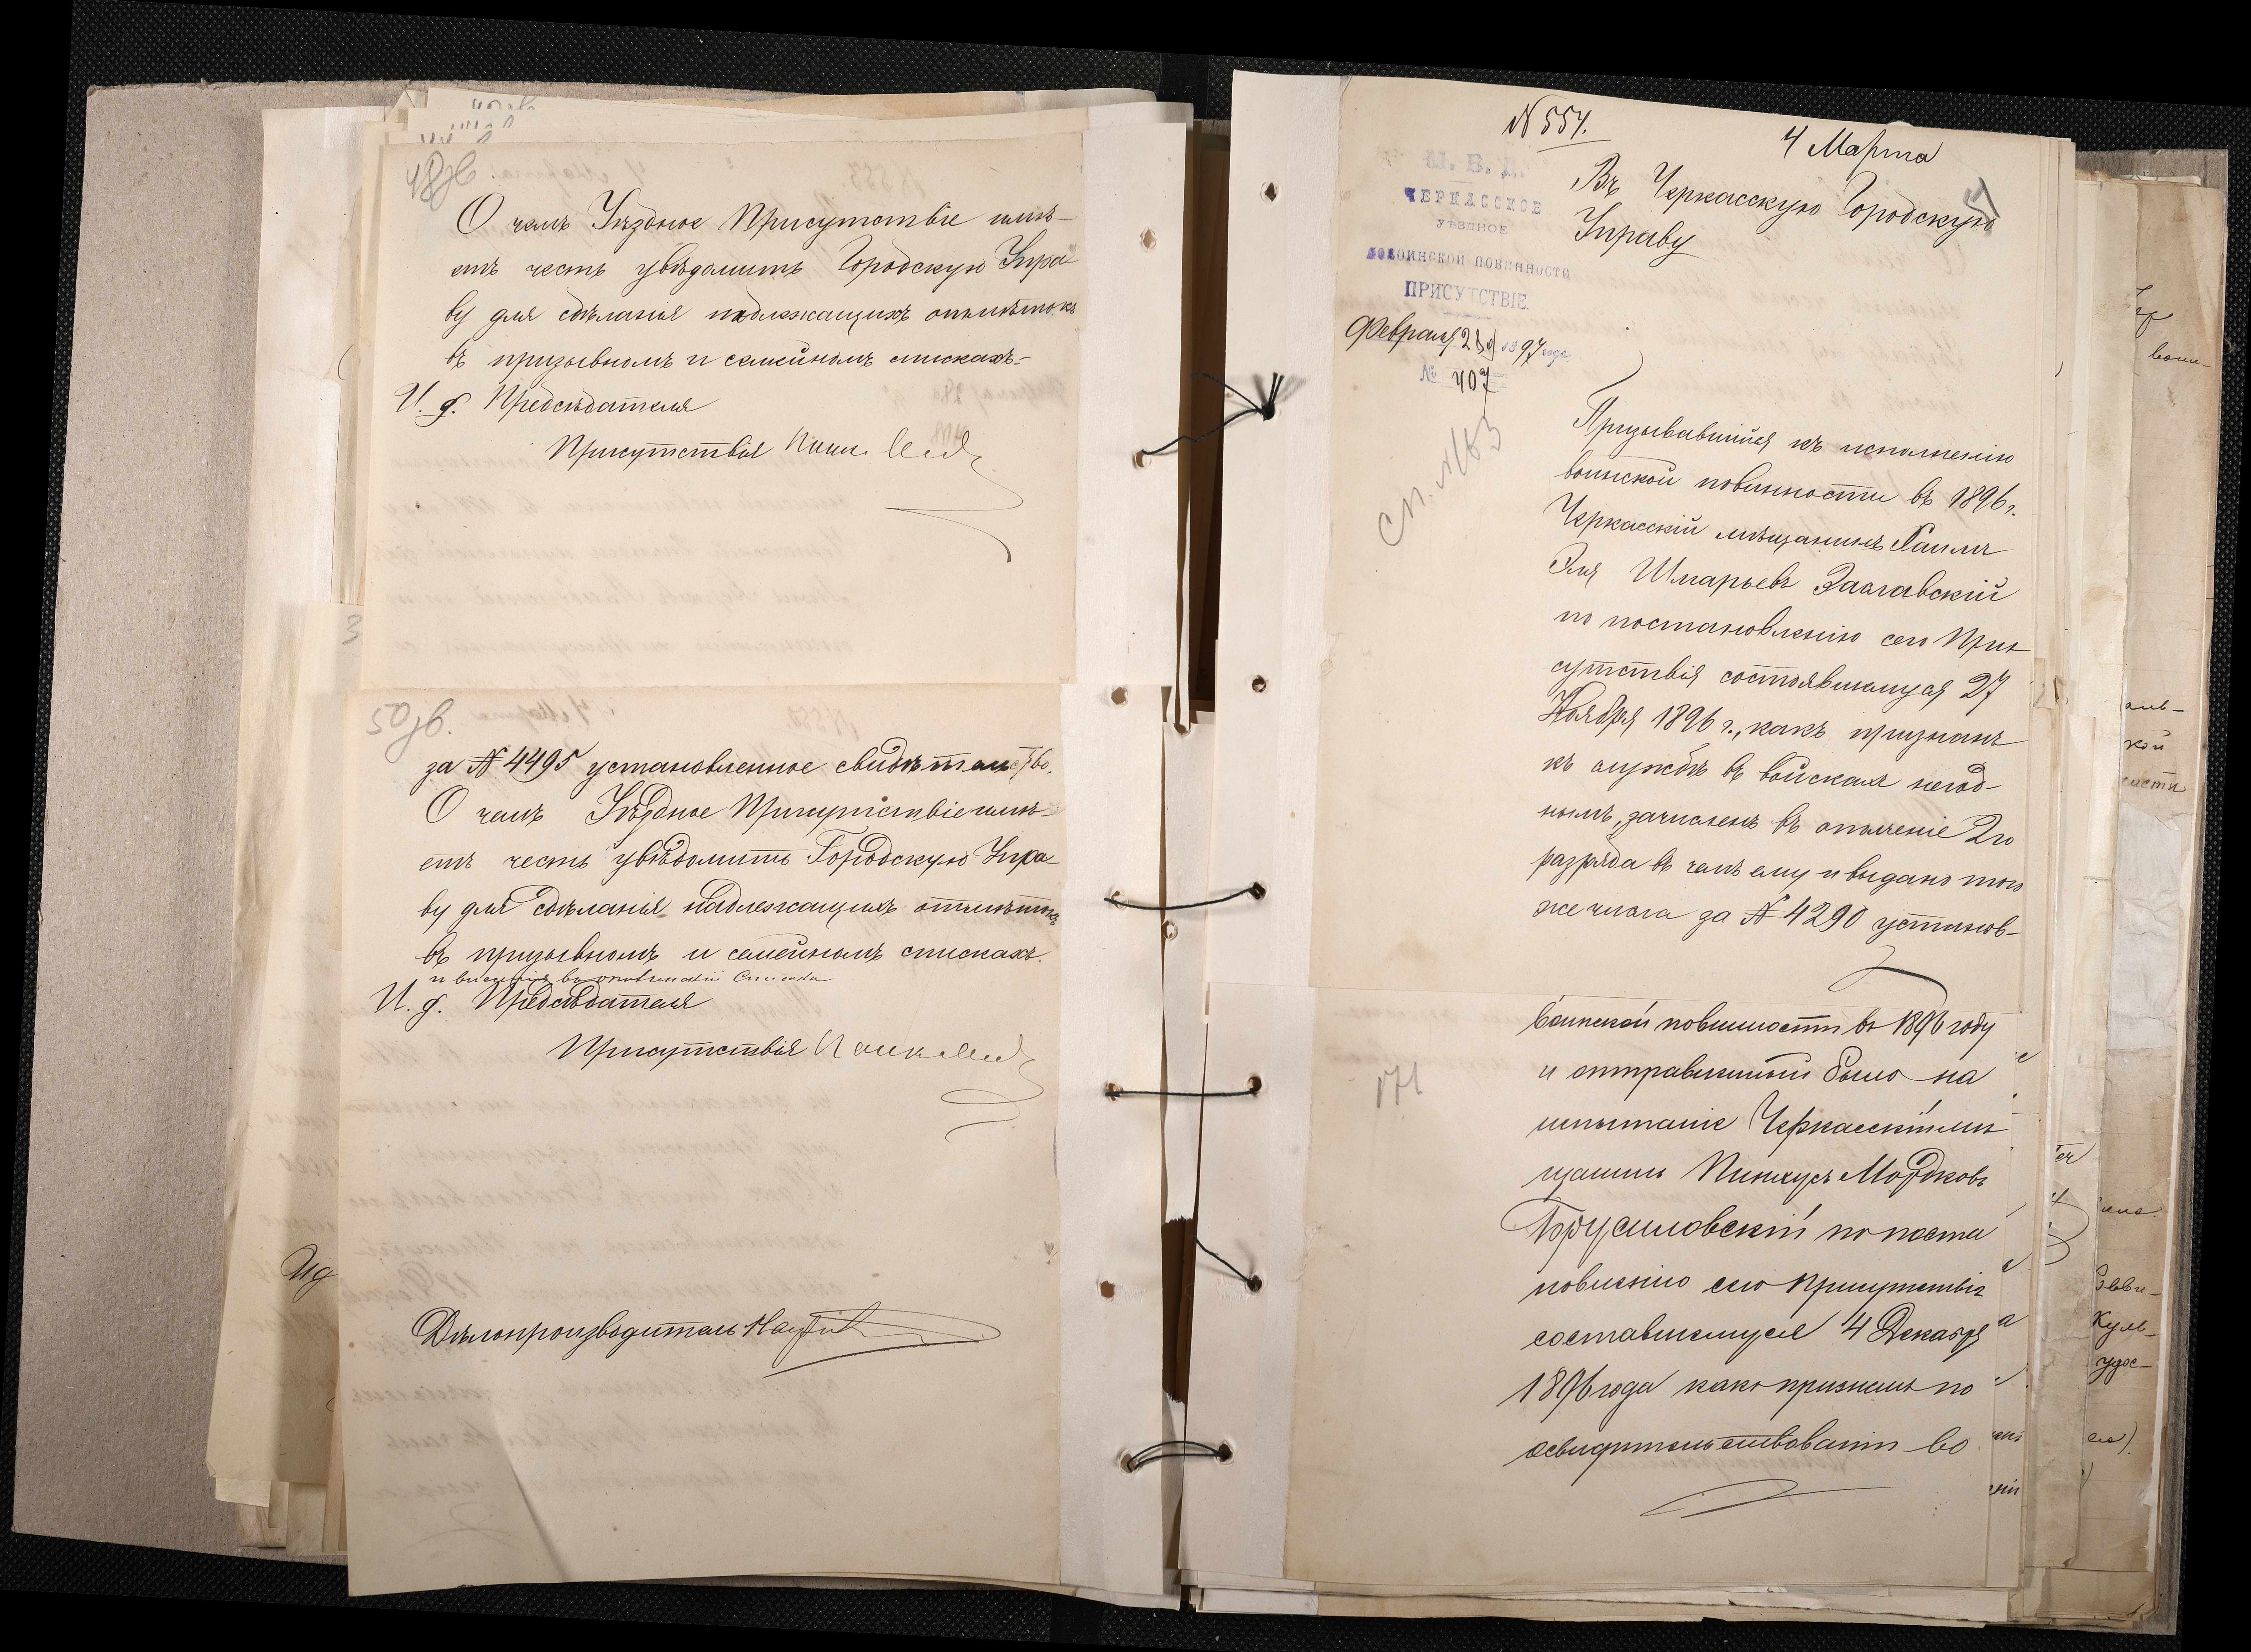 48об.
О чемъ Уѣздное Присутствіе имѣ-
етъ честь увѣдомить Городскую Упра
ву для сдѣланія надлежащихъ отмѣтокъ
въ призывномъ и семейномъ спискахъ.-
И. д. Предсѣдателя
Присутствія
3
50об.
за № 4495 установленное свидѣтельство.
О чемъ Уѣздное Присутствіе имѣ-
етъ честь увѣдомить Городскую Упра-
ву для сдѣланія надлежащихъ отмѣтокъ
въ призывномъ и семейномъ спискахъ.
И. д. Предсѣдателя
Присутствія
Дѣлопроизводитель
№ 554.
4 Марта
Въ Черкасскую Городскую
Управу
М. В. Д.
ЧЕРКАССКОЕ
УѢЗДНОЕ
ПО ВОИНСКОЙ ПОВИННОСТИ
ПРИСУТСТВІЕ
Февраля 28 1897 года
№ 407
Сп. №63
Призывавшійся къ исполненію
воинской повинности въ 1896 г.
Черкасскій мѣщанинъ Хаимъ
Эля Шмарьевъ Заславскій
по постановленію сего При-
сутствія состоявшемуся 27
Ноября 1896 г., какъ признанъ
къ службѣ въ войскахъ негод-
нымъ, зачисленъ въ ополченіе 2го
разряда въ чемъ ему и выдано того
же числа за № 4290 установ-
воинской повинности въ 1896 году
и отправленный было на
испытаніе Черкасскій мѣ
щанинъ Пинхусъ Мордковъ
Брусиловскій по поста
новленію сего Присутствія
составшемуся 4 Декабря
1896 года какъ признанъ по
освидѣтельствованіи во
171